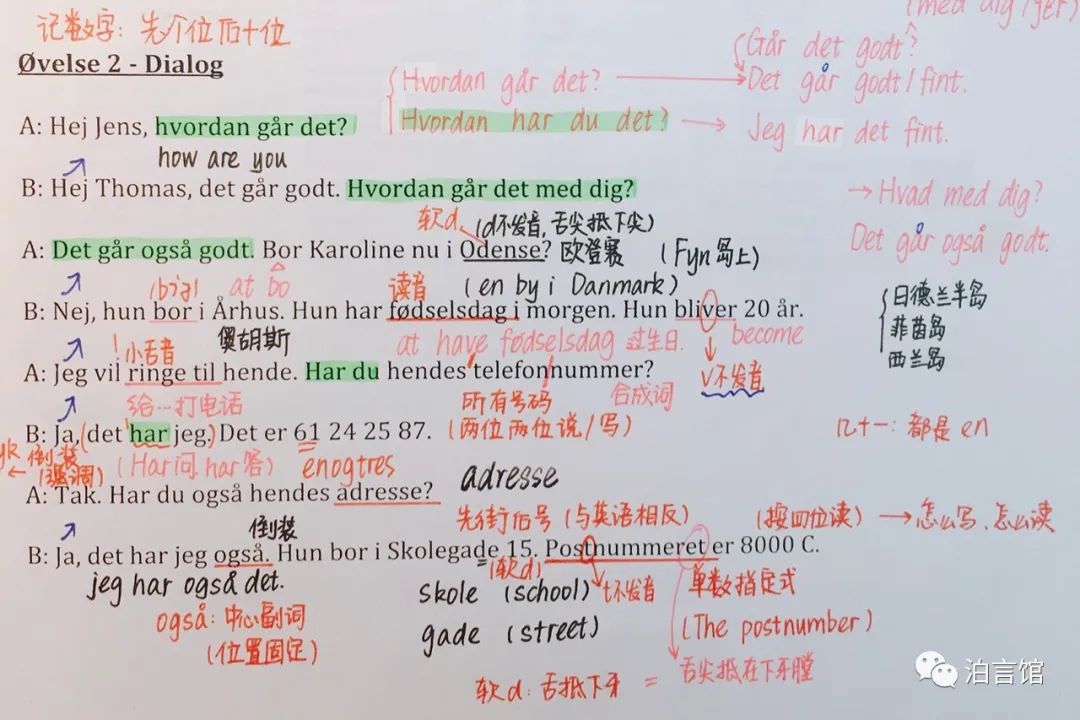 (med dig/jer)
记数字：先个位后十位
Går det godt?
Øvelse 2 - Dialog
Hvordan går det? → Det går godt/fint.
Hvordan har du det? → Jeg har det fint.
A: Hej Jens, hvordan går det?
how are you
B: Hej Thomas, det går godt. Hvordan går det med dig?
→ Hvad med dig?
软d (d不发音,舌尖抵下尖)
Det går også godt.
A: Det går også godt. Bor Karoline nu i Odense? 欧登赛 (Fyn岛上)
at bo 读音 (en by i Danmark)
B: Nej, hun bor i Århus. Hun har fødselsdag i morgen. Hun bliver 20 år.
日德兰半岛
菲茵岛
西兰岛
小舌音 奥胡斯 at have fødselsdag 过生日. become
A: Jeg vil ringe til hende. Har du hendes telefonnummer?
V不发音
给…打电话 所有号码 合成词
B: Ja, (det har jeg.) Det er 61 24 25 87. (两位两位说/写)
几十一：都是en
倒装 (强调) (Har问.har答) enogtres
adresse
A: Tak. Har du også hendes adresse?
倒装 先街后号 (与英语相反) (按四位读) → 怎么写、怎么读
B: Ja, det har jeg også. Hun bor i Skolegade 15. Postnummeret er 8000 C.
(软d)
jeg har også det.
skole (school) t不发音 单数指定式
også: 中心副词
gade (street) (The postnumber)
(位置固定)
软d：舌抵下牙 = 舌尖抵在下牙膛
泊言馆